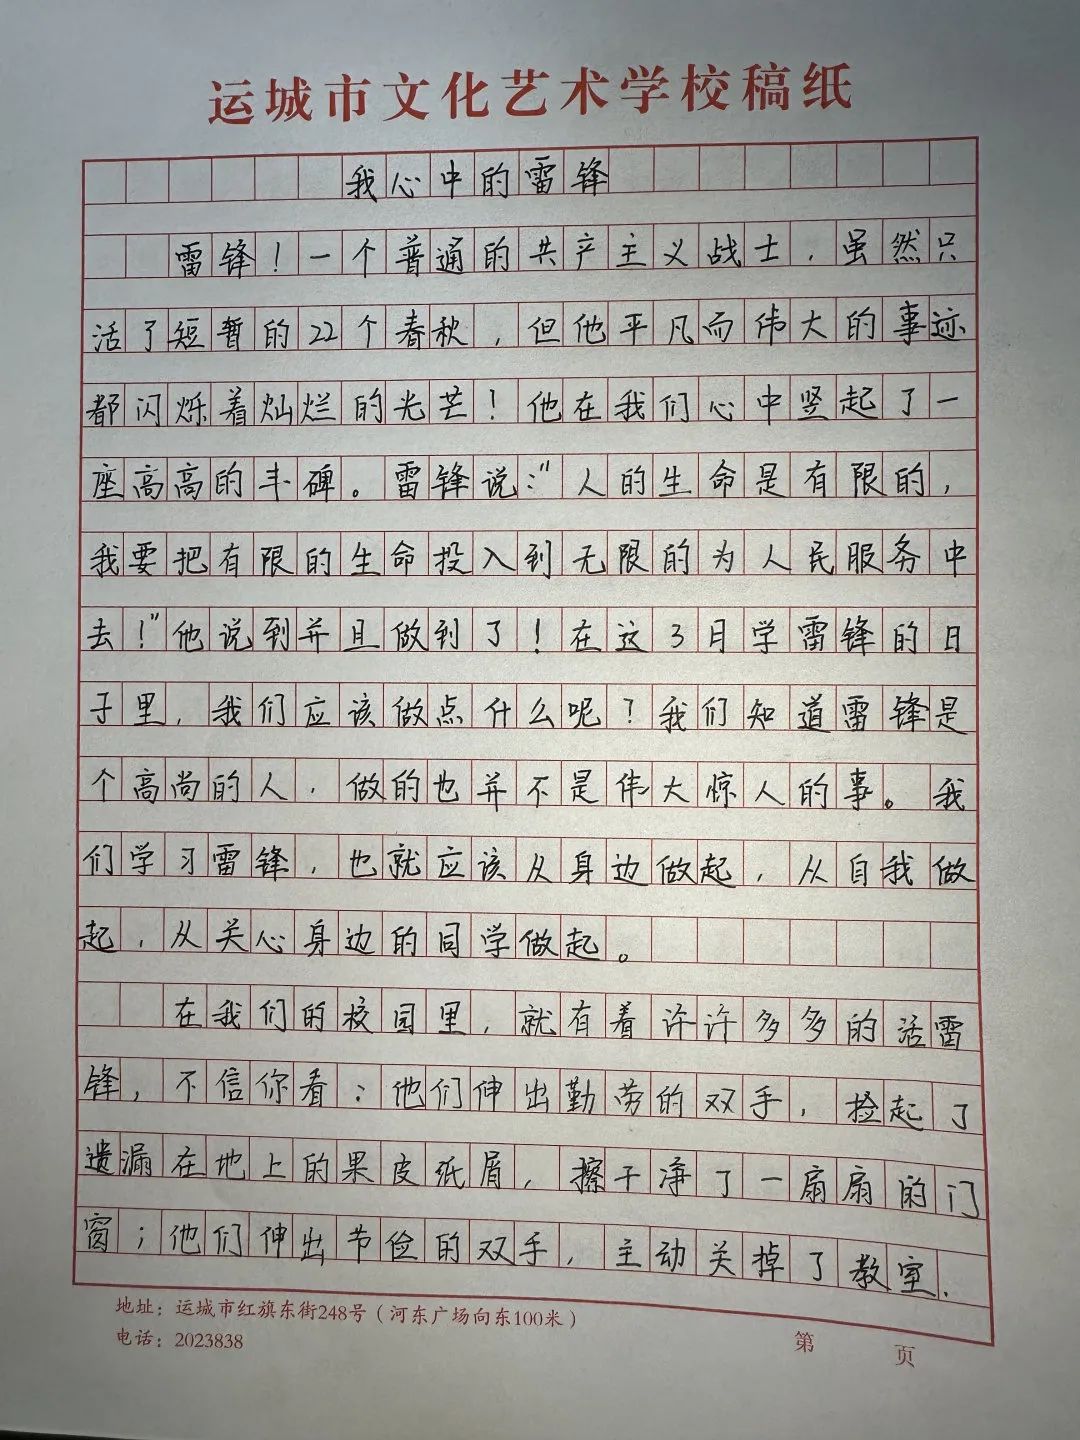 运城市文化艺术学校稿纸
我心中的雷锋
雷锋！一个普通的共产主义战士，虽然只
活了短暂的22个春秋，但他平凡而伟大的事迹
都闪烁着灿烂的光芒！他在我们心中竖起了一
座高高的丰碑。雷锋说："人的生命是有限的，
我要把有限的生命投入到无限的为人民服务中
去！"他说到并且做到了！在这3月学雷锋的日
子里，我们应该做点什么呢？我们知道雷锋是
个高尚的人，做的也并不是伟大惊人的事。我
们学习雷锋，也就应该从身边做起，从自我做
起，从关心身边的同学做起。
在我们的校园里，就有着许许多多的活雷
锋，不信你看：他们伸出勤劳的双手，捡起了
遗漏在地上的果皮纸屑，擦干净了一扇扇的门
窗；他们伸出节俭的双手，主动关掉了教室.
地址：运城市红旗东街248号（河东广场向东100米）
电话：2023838
第 页